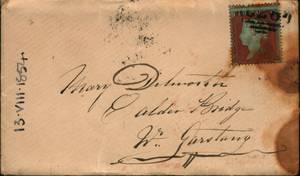 Mary Dilworth
Calder Bridge
Nr Garstang
13·VIII·1854